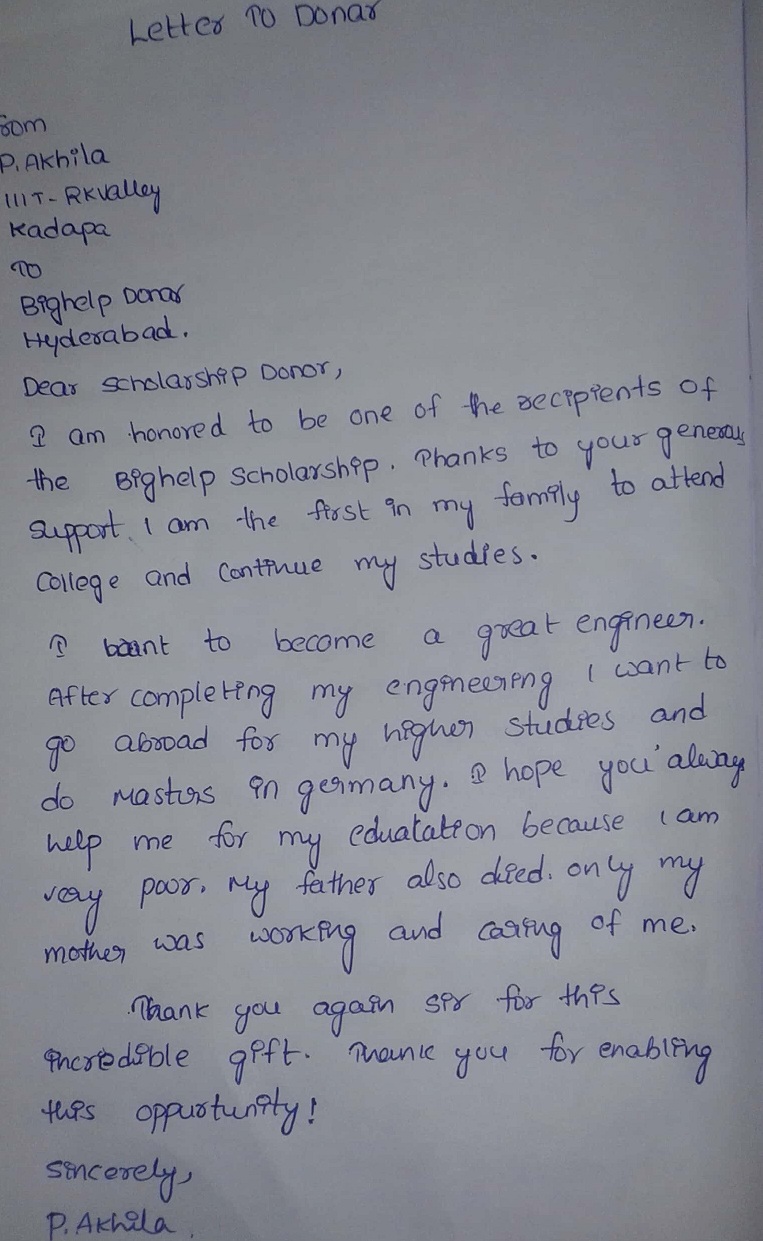 Letter To Donar
rom
P. Akhila
IIIT - RKvalley
Kadapa
To
Bighelp Donar
Hyderabad.
Dear Scholarship Donor,
I am honored to be one of the recipients of
the Bighelp Scholarship. Thanks to your generous
support. I am the first in my family to attend
College and continue my studies.
I want to become a great engineer.
After completing my engineering I want to
go abroad for my higher studies and
do Masters in germany. I hope you alway
help me for my eduatation because I am
very poor. My father also died. only my
mother was working and caring of me.
Thank you again sir for this
incredible gift. Thank you for enabling
this oppurtunity!
Sincerely,
P. Akhila.